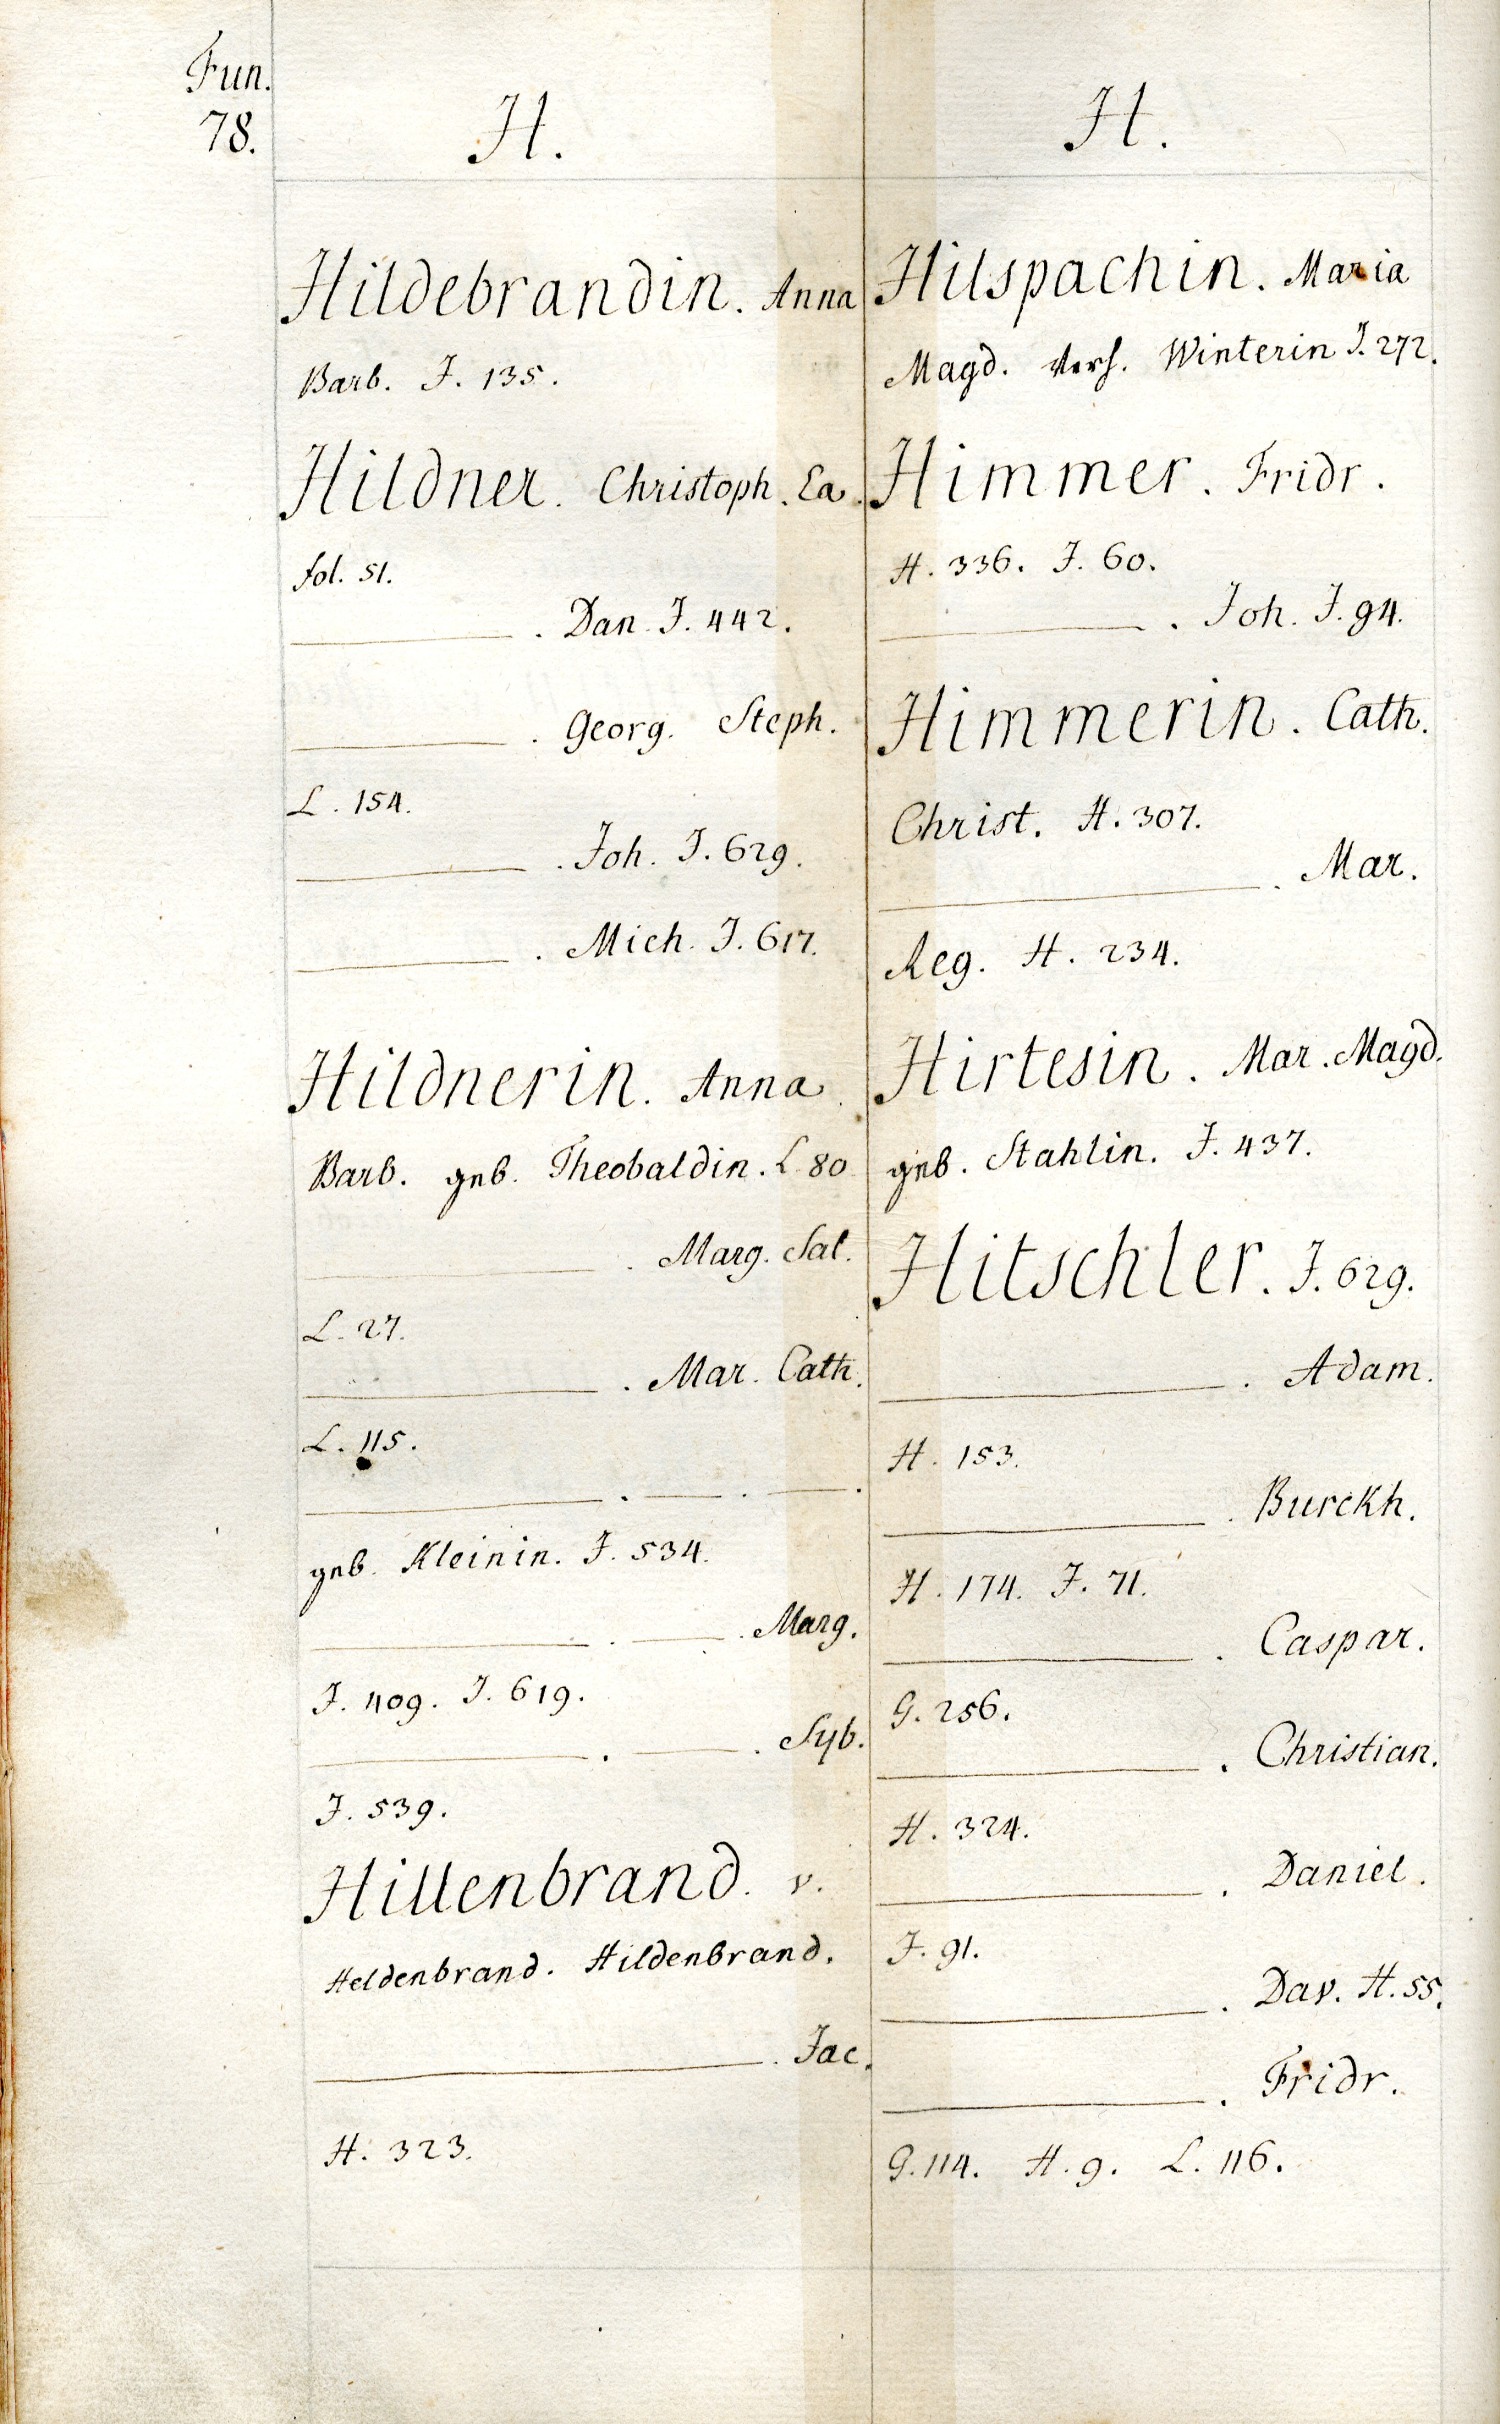 Fun.
78.
H.
Hildebrandin. Anna
Barb. J. 135.
Hildner. Christoph. Ea.
fol. 51.
———. Dan. J. 442.
———. Georg. Steph.
L. 154.
———. Joh. J. 629.
———. Mich. J. 617.
Hildnerin. Anna
Barb. geb. Theobaldin. L. 80
———. Marg. Sal.
L. 27.
———. Mar. Cath.
L. 115.
———. ———. ———.
geb. Kleinin. J. 534.
———. ———. Marg.
J. 409. J. 619.
———. ———. Syb.
J. 539.
Hillenbrand. v.
Heldenbrand. Hildenbrand.
———. Jac.
H. 323.
H.
Hilspachin. Maria
Magd. Winterin J. 272.
Himmer. Fridr.
H. 336. J. 60.
———. Joh. J. 94.
Himmerin. Cath.
Christ. H. 307.
———. Mar.
Reg. H. 234.
Hirtesin. Mar. Magd.
geb. Stahlin. J. 437.
Hitschler. J. 629.
———. Adam.
H. 153.
———. Burckh.
H. 174. J. 71.
———. Caspar.
G. 256.
———. Christian.
H. 324.
———. Daniel.
J. 91.
———. Dav. H. 55.
———. Fridr.
G. 114. H. 9. L. 116.